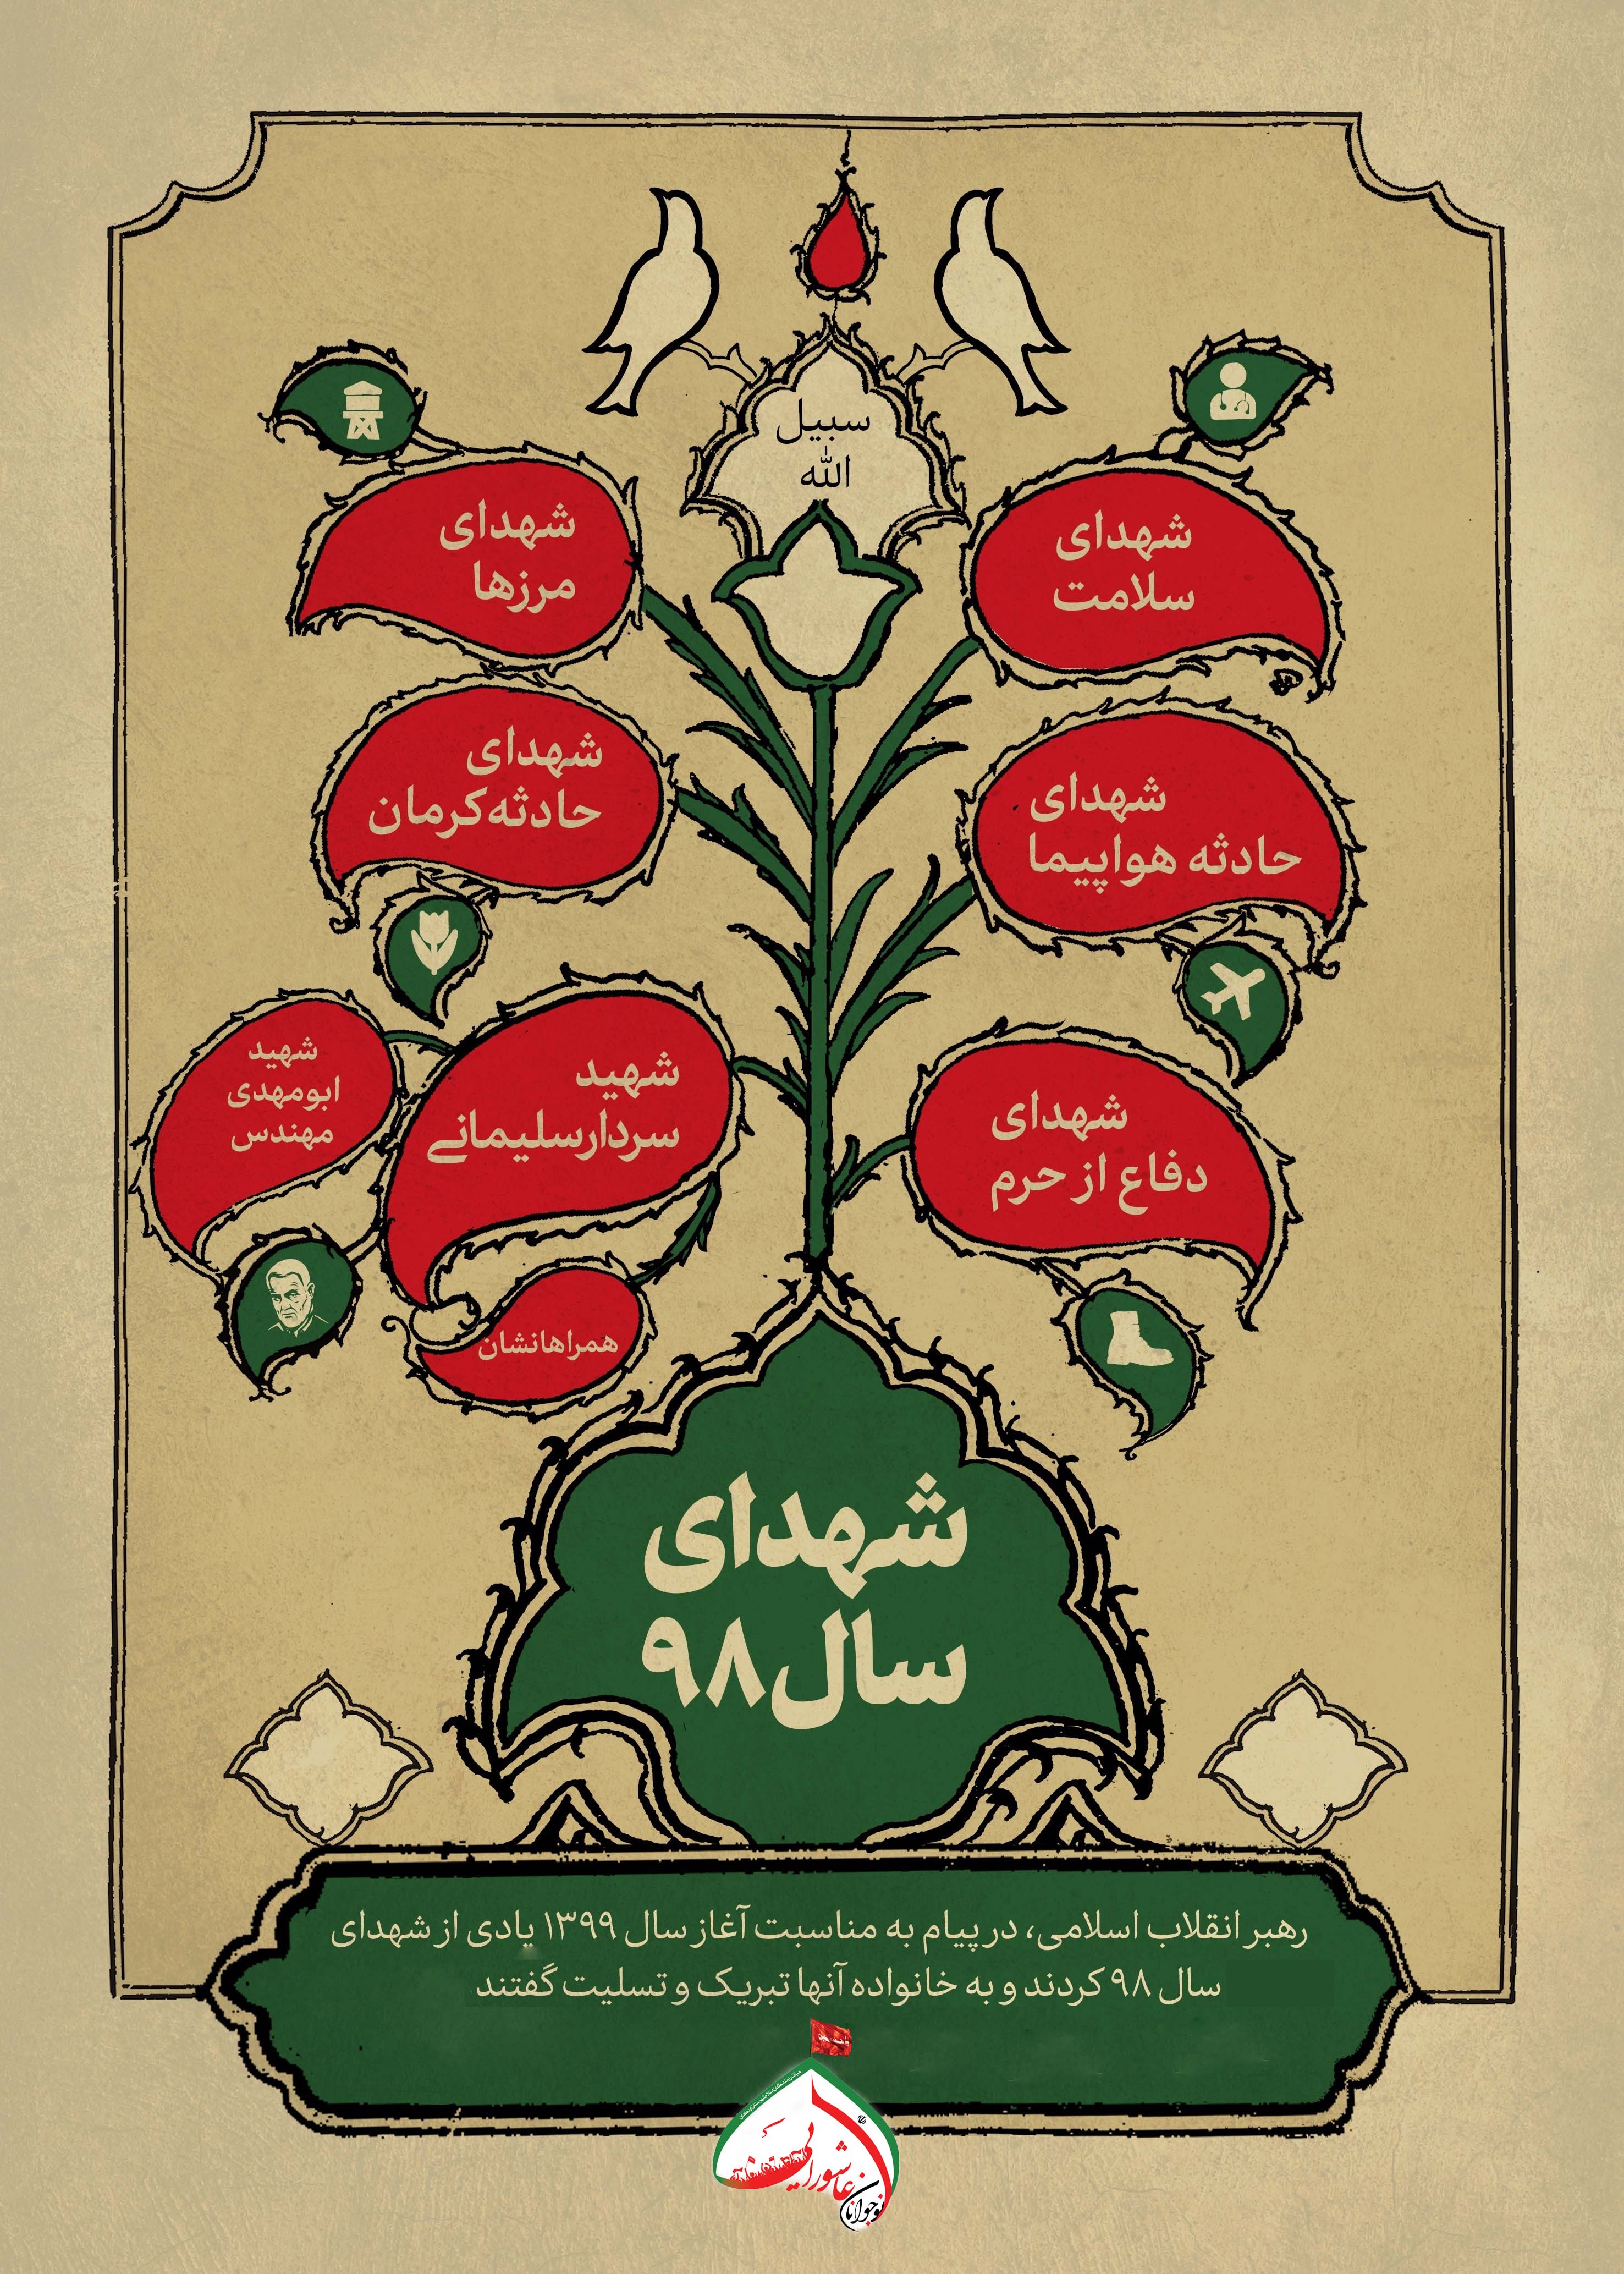 سبیل
الله
شهدای
سلامت
شهدای
مرزها
شهدای
حادثه هواپیما
شهدای
حادثه کرمان
شهدای
دفاع از حرم
شهید
سردار سلیمانے
شهید
ابومهدی
مهندس
همراهانشان
شهدای
سال ۹۸
رهبر انقلاب اسلامی، در پیام به مناسبت آغاز سال ۱۳۹۹ یادی از شهدای
سال ۹۸ کردند و به خانواده آنها تبریک و تسلیت گفتند
نوجوانان عاشورایی